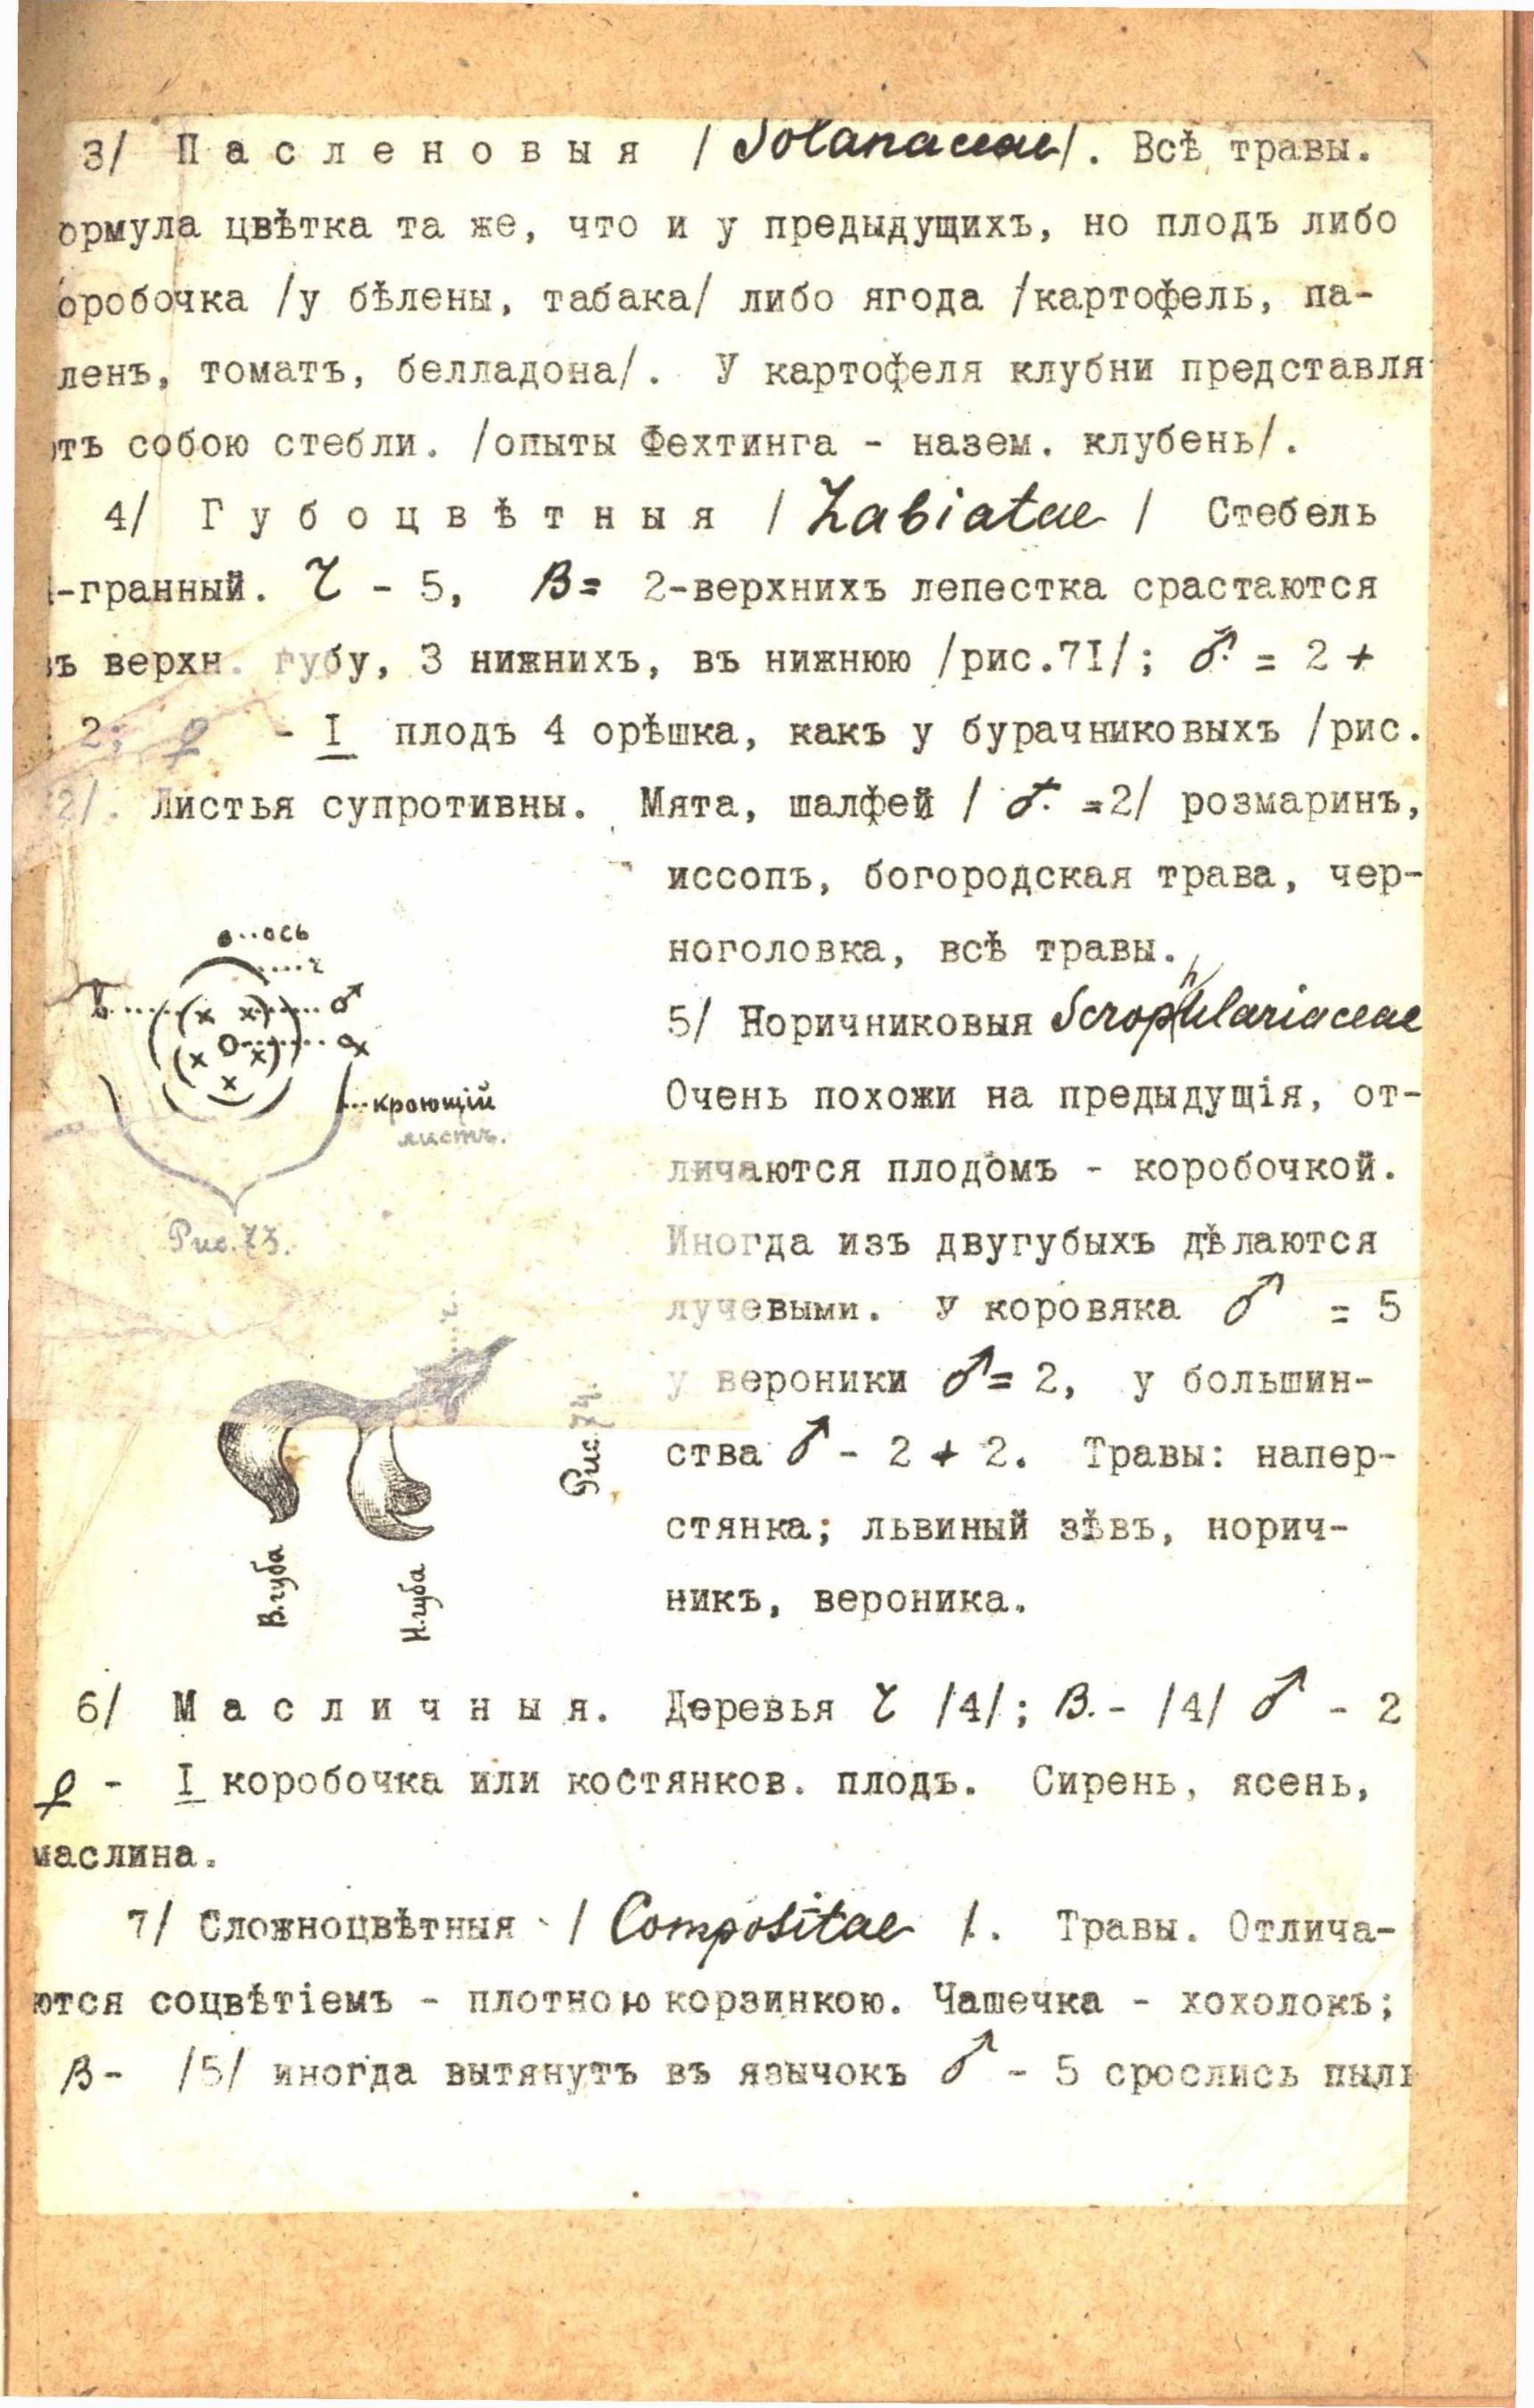 3/ Пасленовыя /Solanaceae/. Всѣ травы.
ормула цвѣтка та же, что и у предыдущихъ, но плодъ либо
оробочка /у бѣлены, табака/ либо ягода /картофель, па-
ленъ, томатъ, белладона/. У картофеля клубни представля
отъ собою стебли. /опыты Фехтинга - назем. клубень/.
4/ Губоцвѣтныя /Labiatae/ Стебель
-гранный. Ч - 5, В= 2-верхнихъ лепестка срастаются
въ верхн. губу, 3 нижнихъ, въ нижнюю /рис.7I/; ♂ = 2 +
2; ♀ - I плодъ 4 орѣшка, какъ у бурачниковыхъ /рис.
2/. Листья супротивны. Мята, шалфей / ♂ =2/ розмаринъ,
иссопъ, богородская трава, чер-
ноголовка, всѣ травы.
5/ Норичниковыя Scrophulariaceae
Очень похожи на предыдущія, от-
личаются плодомъ - коробочкой.
Иногда изъ двугубыхъ дѣлаются
лучевыми. У коровяка ♂ = 5
у вероники ♂ = 2, у большин-
ства ♂ - 2 + 2. Травы: напер-
стянка; львиный зѣвъ, норич-
никъ, вероника.
ось
ч
в ♂
♀
кроющій
листъ.
Рис. 73.
ч.
Рис. 74.
В. губа
Н. губа
6/ Масличныя. Деревья Ч /4/; В. - /4/ ♂ - 2
♀ - I коробочка или костянков. плодъ. Сирень, ясень,
маслина.
7/ Сложноцвѣтныя /Compositae/. Травы. Отлича-
ются соцвѣтіемъ - плотною корзинкою. Чашечка - хохолокъ;
В - /5/ иногда вытянутъ въ язычокъ ♂ - 5 срослись пыль